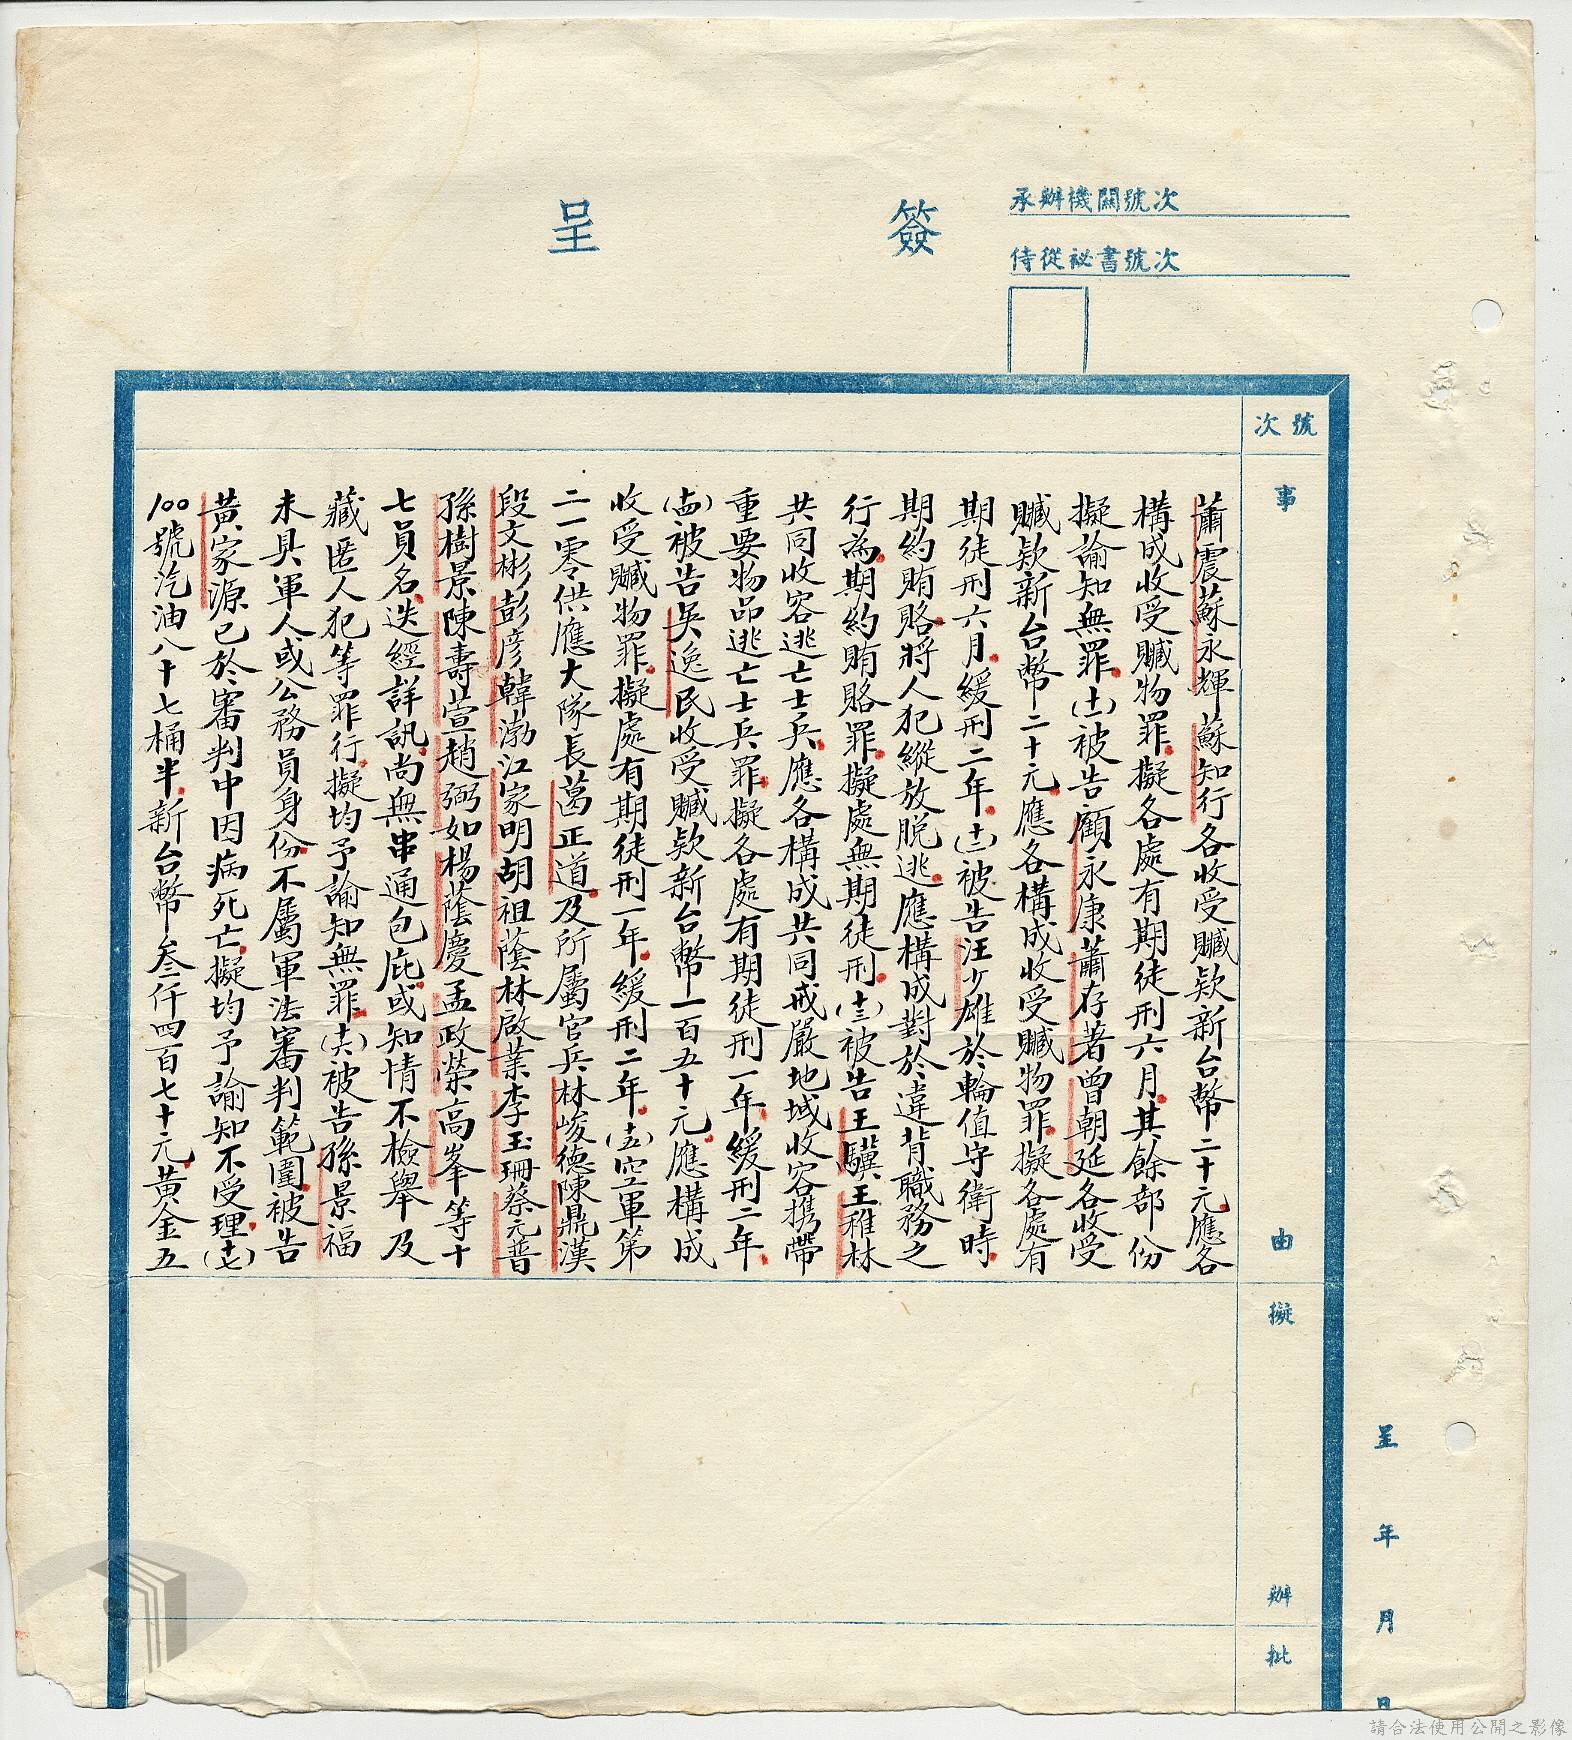 簽呈
承辦機關號次
侍從祕書號次
號次
事由
擬辦
批
呈 年 月 日
蕭震蘇永輝蘇知行各收受贓欵新台幣二十元應各
構成收受贓物罪擬各處有期徒刑六月其餘部份
擬諭知無罪(十一)被告顧永康蕭存著曾朝延各收受
贓欵新台幣二十元應各構成收受贓物罪擬各處有
期徒刑六月緩刑二年(十二)被告汪少雄於輪值守衛時
期約賄賂將人犯縱放脫逃應構成對於違背職務之
行為期約賄賂罪擬處無期徒刑(十三)被告王驥王稚林
共同收容逃亡士兵應各構成共同戒嚴地域收容携帶
重要物品逃亡士兵罪擬各處有期徒刑一年緩刑二年
(十四)被告吳逸民收受贓欵新台幣一百五十元應構成
收受贓物罪擬處有期徒刑一年緩刑二年(十五)空軍第
二一零供應大隊長葛正道及所屬官兵林峻德陳鼎漢
段文彬彭彦韓渤江家明胡祖蔭林啟業李玉珊蔡元普
孫樹景陳壽萱趙弼如楊蔭慶孟政榮高峯等十
七員名迭經詳訊尚無串通包庇或知情不檢舉及
藏匿人犯等罪行擬均予諭知無罪(十六)被告孫景福
未具軍人或公務員身份不屬軍法審判範圍被告
黃家源已於審判中因病死亡擬均予諭知不受理(十七)
100號汽油八十七桶半新台幣叁仟四百七十元黃金五
請合法使用公開之影像